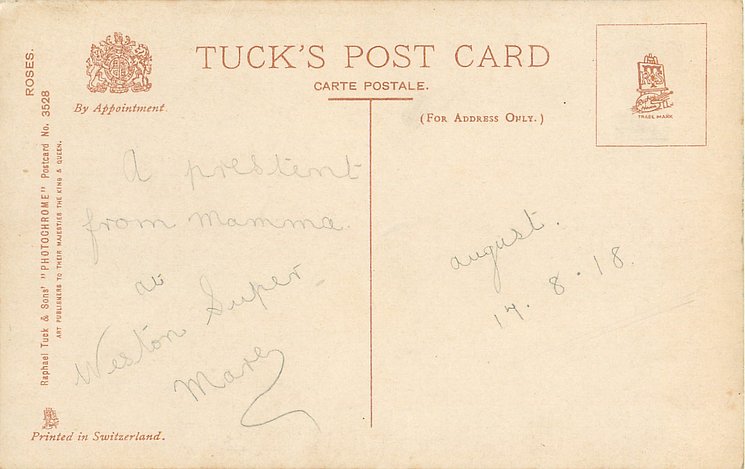 ROSES.
Raphael Tuck & Sons' "PHOTOCHROME" Postcard No. 3528
ART PUBLISHERS TO THEIR MAJESTIES THE KING & QUEEN.
By Appointment.
TUCK'S POST CARD
CARTE POSTALE.
(FOR ADDRESS ONLY.)
TRADE MARK
A prestent
from Mamma.
at
Weston Super
Mare
august.
17.8.18.
Printed in Switzerland.